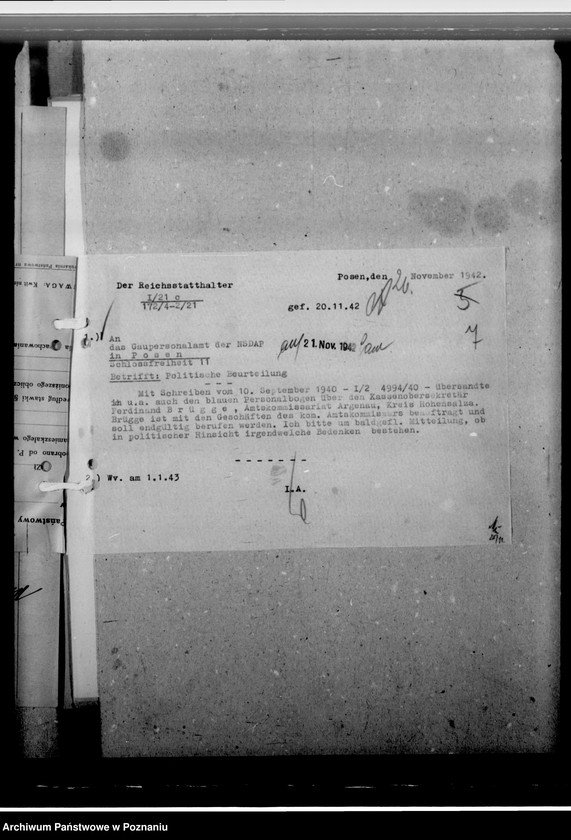 Posen,den 20. November 1942.
Der Reichsstatthalter
I/21 c
172/4-2/21
gef. 20.11.42
5
7
1.)
An
das Gaupersonalamt der NSDAP
in Posen
Schlossfreiheit 11
21. Nov. 1942
Betrifft: Politische Beurteilung
Mit Schreiben vom 10. September 1940 - I/2 4994/40 - übersandte
ich u.a. auch den blauen Personalbogen über den Kassenobersekretär
Ferdinand Brügge, Amtskommissariat Argenau, Kreis Hohensalza.
Brügge ist mit den Geschäften des kom. Amtskommissars beauftragt und
soll endgültig berufen werden. Ich bitte um baldgefl. Mitteilung, ob
in politischer Hinsicht irgendwelche Bedenken bestehen.
2.) Wv. am 1.1.43
I.A.
Państwowy
Archiwum Państwowe w Poznaniu